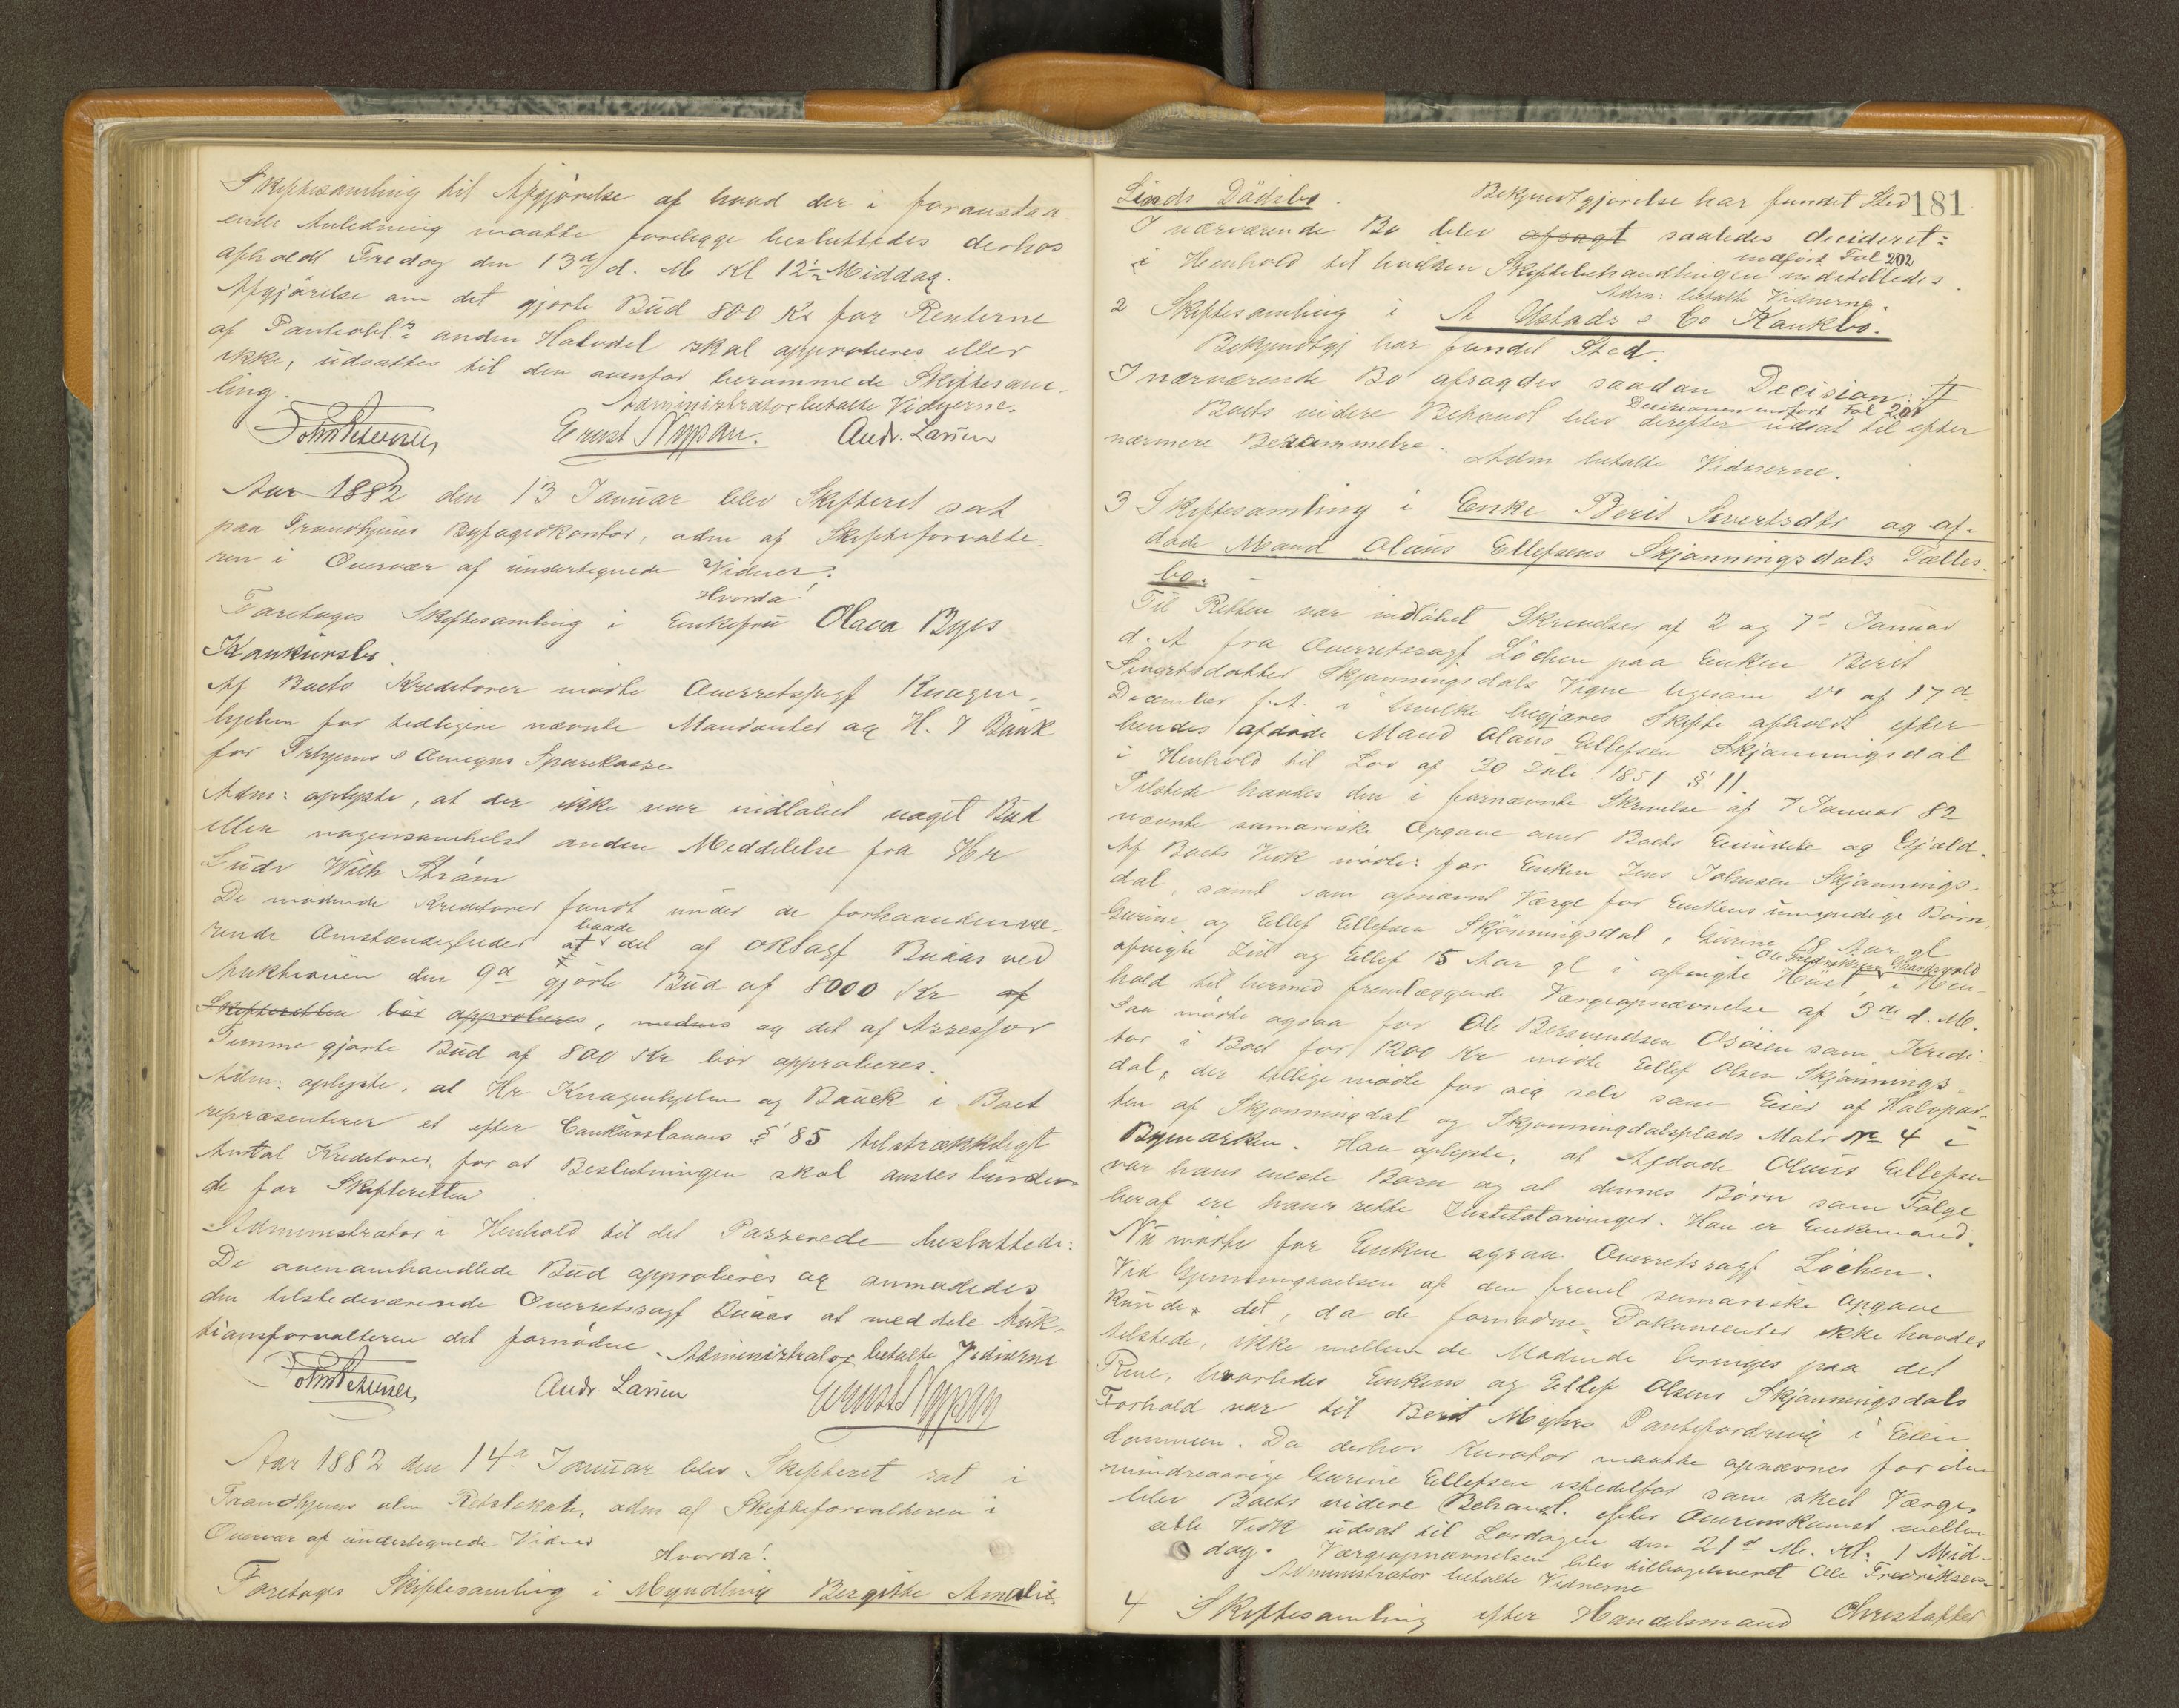 Skiftesamling til Afgjørelse af hvad der i foranstaa-
ende Anledning maatte foreligge besluttedes derhos
afholdt Fredag den 13de d. M. Kl 12 Middag.
Afgjørelse om det gjorte Bud 800 Kr for Renterne
af Panteobl: anden Halvdel skal approberes eller
ikke, udsattes til den ovenfor berammede Skiftesam-
ling.
Administrator betalte Vidnerne.
Ernst Nypan. Andr. Larsen
Aar 1882 den 13 Januar blev Skifteret sat
paa Trondhjems Byfogedkontor, adm af Skifteforvalte-
ren i Overvær af undertegnede Vidner:
Hvorda!
Foretoges Skiftesamling i Enkefru Olava Byes
Konkursbo.
Af Boets Kreditorer mødte Overretssagf Knagen-
hjelm for tidligere nævnte Mandanter og H. J Bauk
for Trhjems & Omegns Sparekasse
Adm: oplyste, at der ikke var indløbet noget Bud
eller nogensomhelst anden Meddelelse fra Hr
Ludv Wilh Strøm
De mødende Kreditorer fandt under de forhaandenvæ-
rende Omstændigheder at baade det af ORsagf Buaas ved
Auktionen den 9de gjorte Bud af 8000 Kr af
Skifteretten bør approberes, medens og det af Assessor
Tumme gjorte Bud af 800 Kr bør approberes.
Adm: oplyste, at Hr Knagenhjelm og Bauck i Boet
repræsenterer et efter Conkurslovens § 85 tilstrækkeligt
Antal Kreditorer, for at Beslutningen skal ansees binden-
de for Skifteretten
Administrator i Henhold til det Passerede besluttede:
De ovenomhandlede Bud approberes og anmodedes
den tilstedeværende Overretssagf Buaas at meddele Auk-
tionsforvalteren det fornødne. Administrator betalte Vidnerne
Andr Larsen Ernst Nypan
Aar 1882 den 14de Januar blev Skifteret sat i
Trondhjems alm Retslokale, adm af Skifteforvalteren i
Overvær af undertegnede Vidner
Hvorda!
Foretoges Skiftesamling i Myndling Bergitte Amalie
181
Linds Dödsbo. Bekjendtgjørelse har fundet Sted
I nærværende Bo blev afsagt saaledes decideret:
indført Fol 202
i Henhold til hvilken Skiftebehandlingen indstilledes.
Adm: betalte Vidnerne.
2 Skiftesamling i A Ustads & Co Konkbo.
Bekjendtgj har fundet Sted.
I nærværende Bo afsagdes saadan Decision:
Decisionen indført Fol 201
Boets videre Behandl blev derefter udsat til efter
nærmere Berammelse. Adm betalte Vidnerne.
3 Skiftesamling i Enke Berit Sivertsdtr og af-
døde Mand Olaus Ellefsens Skjønningsdals Fælles-
bo.
Til Retten var indløbet Skrivelser af 2 og 7de Januar
d. A fra Overretssagf Löchen paa Enken Berit
Sivertsdatter Skjønningsdals Vegne ligesom af 17de
December f. A. i hvilke begjæres Skifte afholdt efter
hendes afdøde Mand Olaus Ellefsen Skjønningsdal
i Henhold til Lov af 30 Juli 1851 § 11.
Tilstede havdes den i fornævnte Skrivelse af 7 Januar 82
nævnte sumariske Opgave over Boets Eiendele og Gjæld.
Af Boets Vedk mødte: for Enken Jens Johnsen Skjønnings-
dal, samt som opnævnt Værge for Enkens umyndige Børn,
Gurine og Ellef Ellefsen Skjönningsdal, Gurine 18 Aar gl
afvigte Jul og Ellef 15 Aar gl i afvigte Høst, Ole Fredriksen Gaardsvold i Hen-
hold til hermed fremlæggende Værgeopnævnelse af 3de d. M.
Saa mødte ogsaa for Ole Bersvendsen Osøien som Kredi-
tor i Boet for 1200 Kr mødte Ellef Olsen Skjønnings-
dal, der tillige mødte for sig selv som Eier af Halvpar-
ten af Skjønningdal og Skjønningdalsplads Matr No 4 i
Bymarken. Han oplyste, at Afdøde Olaus Ellefsen
var hans eneste Barn og at dennes Børn som Følge
heraf ere hans rette Intestatarvinger. Han er Enkemand.
Nu mødte for Enken ogsaa Overretssagf Löchen.
Ved Gjennemgaaelsen af den freml sumariske Opgave
kunde det, da de fornødne Dokumenter ikke havdes
tilstede, ikke mellem de Mødende bringes paa det
Rene, hvorledes Enkens og Ellef Olsens Skjønningsdals
Forhold var til Berit Myhrs Pantefordring i Eien
dommen. Da derhos Kurator maatte opnævnes for den
mindreaarige Gurine Ellefsen istedetfor som skeet Værge,
blev Boets videre Behandl. efter Overenskomst mellem
alle Vedk udsat til Lørdagen den 21de d. M. Kl: 1 Mid-
dag. Værgeopnævnelsen blev tilbageleveret Ole Fredriksen
Administrator betalte Vidnerne
4 Skiftesamling efter Handelsmand Christoffer